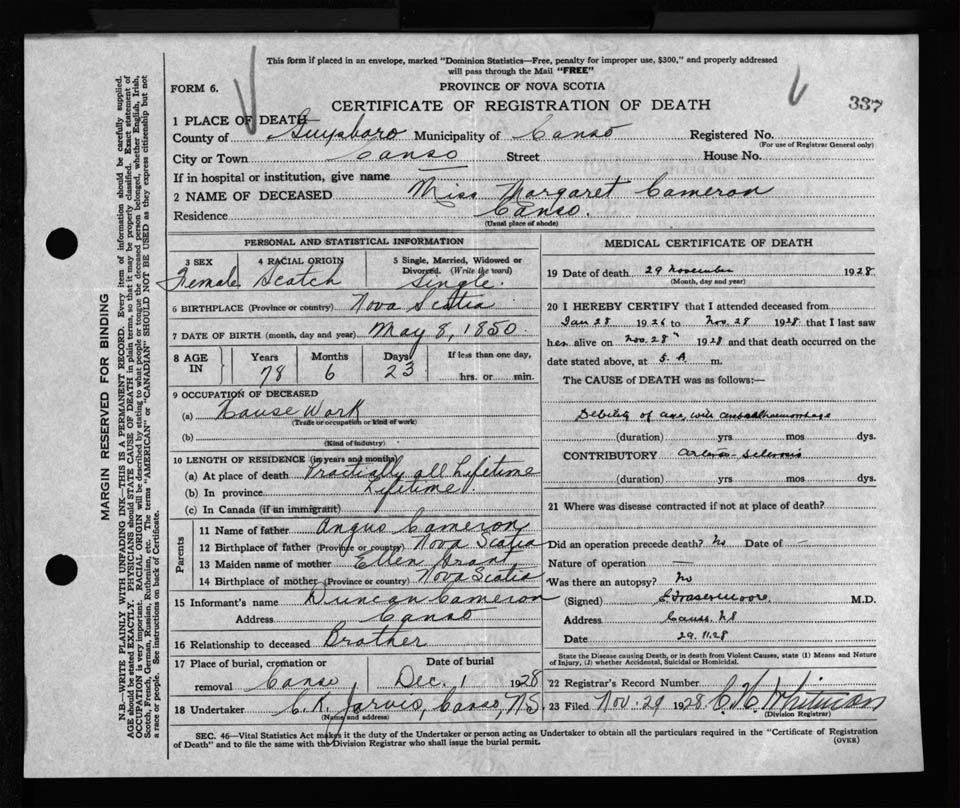 This form if placed in an envelope, marked "Dominion Statistics—Free, penalty for improper use, $300," and properly addressed
will pass through the Mail "FREE"
FORM 6.
PROVINCE OF NOVA SCOTIA
CERTIFICATE OF REGISTRATION OF DEATH
337
1 PLACE OF DEATH
County of Guysboro Municipality of Canso Registered No.
(For use of Registrar General only)
City or Town Canso Street House No.
If in hospital or institution, give name
2 NAME OF DECEASED Miss Margaret Cameron
Residence Canso.
(Usual place of abode)
PERSONAL AND STATISTICAL INFORMATION
3 SEX 4 RACIAL ORIGIN 5 Single, Married, Widowed or
Divorced. (Write the word)
Female Scotch Single.
6 BIRTHPLACE (Province or country) Nova Scotia
7 DATE OF BIRTH (month, day and year) May 8, 1850.
8 AGE IN Years Months Days If less than one day,
78 6 23 hrs. or min.
9 OCCUPATION OF DECEASED
(a) House Work
(Trade or occupation or kind of work)
(b)
(Kind of industry)
10 LENGTH OF RESIDENCE (in years and months)
(a) At place of death Practially all Lifetime
(b) In province Lifetime
(c) In Canada (if an immigrant)
Parents
11 Name of father Angus Cameron
12 Birthplace of father (Province or country) Nova Scotia
13 Maiden name of mother Ellen Grant
14 Birthplace of mother (Province or country) Nova Scotia
15 Informant's name Duncan Cameron
Address Canso
16 Relationship to deceased Brother
17 Place of burial, cremation or Date of burial
removal Canso Dec. 1 1928
18 Undertaker C. R. Jarvis, Canso, N.S.
(Name and address)
MEDICAL CERTIFICATE OF DEATH
19 Date of death 29 November 1928.
(Month, day and year)
20 I HEREBY CERTIFY that I attended deceased from
Jan 28 1926 to Nov. 28 1928 that I last saw
her alive on Nov. 28" 1928 and that death occurred on the
date stated above, at 5. A. m.
The CAUSE OF DEATH was as follows:—
Debility of age, with
(duration) yrs mos dys.
CONTRIBUTORY Arterio-Sclerosis
(duration) yrs. mos. dys.
21 Where was disease contracted if not at place of death?
Did an operation precede death? No Date of —
Nature of operation —
Was there an autopsy? No
(Signed) Fraser Moore M.D.
Address Canso. NS
Date 29.11.28
State the Disease causing Death, or in death from Violent Causes, state (1) Means and Nature
of Injury, (2) whether Accidental, Suicidal or Homicidal.
22 Registrar's Record Number
23 Filed Nov. 29 1928 Whitman
(Division Registrar)
SEC. 46—Vital Statistics Act makes it the duty of the Undertaker or person acting as Undertaker to obtain all the particulars required in the "Certificate of Registration
of Death" and to file the same with the Division Registrar who shall issue the burial permit.
(OVER)
MARGIN RESERVED FOR BINDING
N.B.—WRITE PLAINLY WITH UNFADING INK—THIS IS A PERMANENT RECORD. Every item of information should be carefully supplied.
AGE should be stated EXACTLY. PHYSICIANS should STATE CAUSE OF DEATH in plain terms, so that it may be properly classified. Exact statement of
OCCUPATION is very important. RACIAL ORIGIN will be described by stating to what people or tongue the deceased person belonged, whether English, Irish,
Scotch, French, German, Russian, Ruthenian, etc. The terms "AMERICAN" or "CANADIAN" SHOULD NOT BE USED as they express citizenship but not
a race or people. See instructions on back of Certificate.